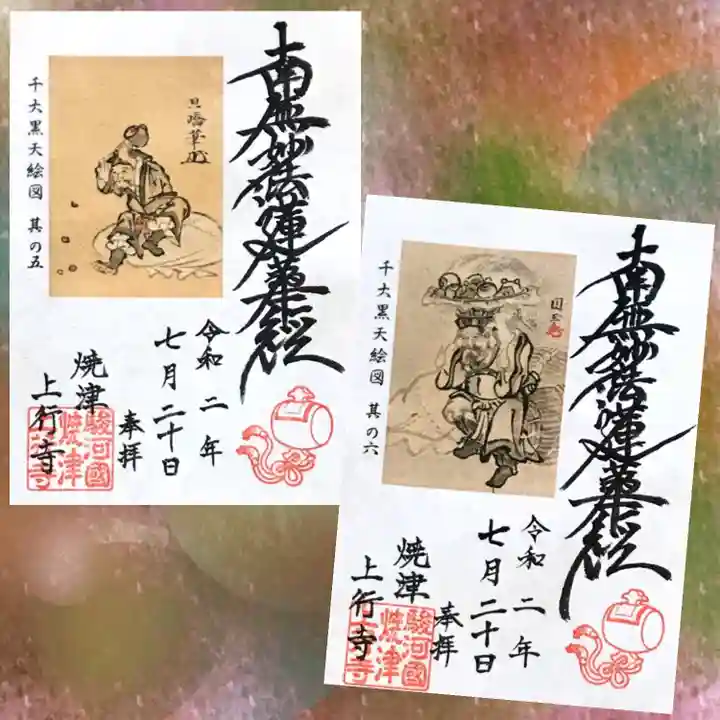 南無妙法蓮華経
千大黒天絵図 其の五
令和二年
七月二十日
奉拝
焼津
上行寺
駿河國
焼津
上行寺
南無妙法蓮華経
千大黒天絵図 其の六
国三
令和二年
七月二十日
奉拝
焼津
上行寺
駿河國
焼津
上行寺